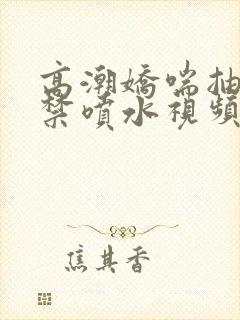 高潮嬌喘抽
禁噴水視頻
焦其香